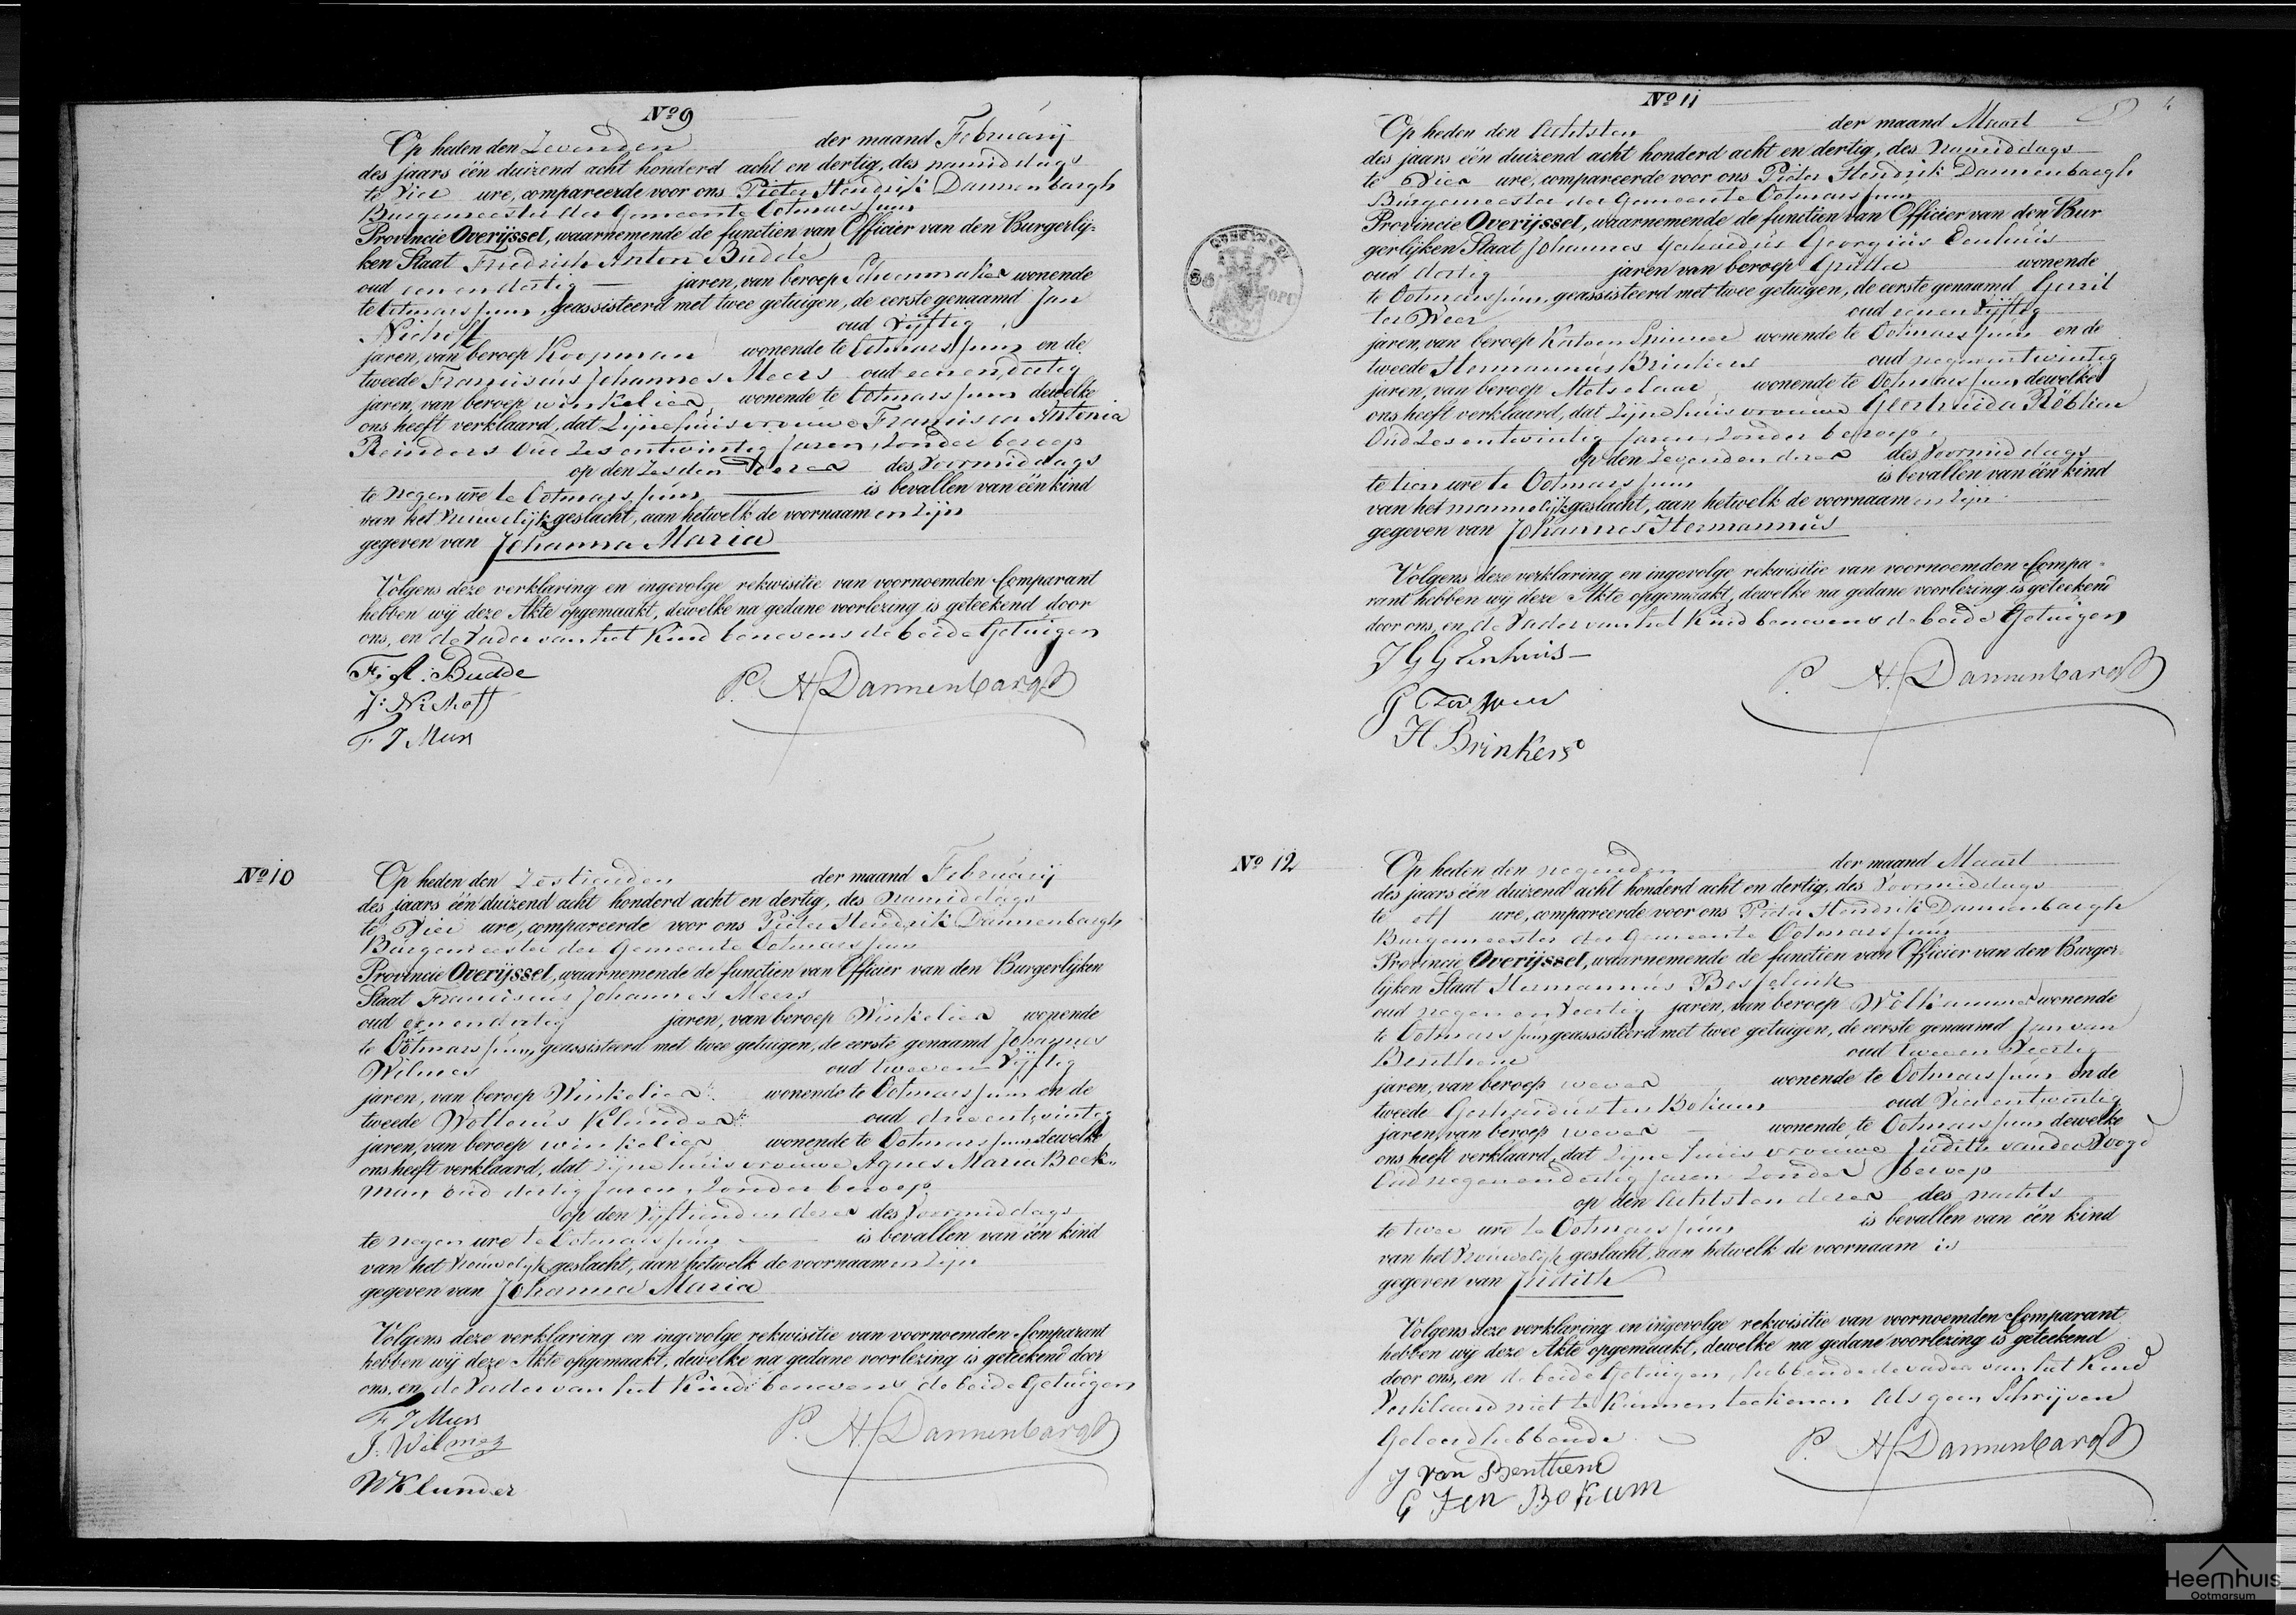 Nº 9
Op heden den Zevenden der maand Februarij
des jaars één duizend acht honderd acht en dertig, des namiddags
te Vier ure, compareerde voor ons Pieter Hendrik Dannenbargh
Burgemeester der Gemeente Ootmarssum
Provincie Overijssel, waarnemende de functien van Officier van den Burgerlij=
ken Staat Friedrich Anton Budde
oud een en dertig jaren, van beroep Schoenmaker wonende
te Ootmarssum, geassisteerd met twee getuigen, de eerste genaamd Jan
Niehoff oud Vijftig
jaren, van beroep Koopman wonende te Ootmarssum en de
tweede Franciscus Johannes Meers oud een en dertig
jaren, van beroep winkelier wonende te Ootmarssum dewelke
ons heeft verklaard, dat Zijne huisvrouwe Francisca Antonia
Reinders Oud Zes entwintig Jaren, Zonder beroep
op den Zesden dezer des Voormiddags
te negen ure te Ootmarssum is bevallen van één kind
van het Vrouwelijk geslacht, aan hetwelk de voornaamen zijn
gegeven van Johanna Maria
Volgens deze verklaring en ingevolge rekwisitie van voornoemden Comparant
hebben wij deze Akte opgemaakt, dewelke na gedane voorlezing is geteekend door
ons, en de Vader van het Kind benevens de beide Getuigen
F: A: Budde
P. H. Dannenbargh
J: Niehoff
F J Meers
Nº 10
Op heden den Zestienden der maand Februarij
des jaars één duizend acht honderd acht en dertig, des namiddags
te Vier ure, compareerde voor ons Pieter Hendrik Dannenbargh
Burgemeester der Gemeente Ootmarssum
Provincie Overijssel, waarnemende de functien van Officier van den Burgerlijken
Staat Franciscus Johannes Meers
oud een en dertig jaren, van beroep Winkelier wonende
te Ootmarssum, geassisteerd met twee getuigen, de eerste genaamd Johannes
Wilmes oud twee en Vijftig
jaren, van beroep Winkelier wonende te Ootmarssum en de
tweede Wolterus Klunder oud drie entwintig
jaren, van beroep winkelier wonende te Ootmarssum dewelke
ons heeft verklaard, dat zijne huisvrouwe Agnes Maria Beek„
man oud dertig Jaren, Zonder beroep
op den Vijftienden dezer des Voormiddags
te negen ure te Ootmarssum is bevallen van één kind
van het Vrouwelijk geslacht, aan hetwelk de voornaamen zijn
gegeven van Johanna Maria
Volgens deze verklaring en ingevolge rekwisitie van voornoemden Comparant
hebben wij deze Akte opgemaakt, dewelke na gedane voorlezing is geteekend door
ons, en de Vader van het Kind benevens de beide Getuigen
F J Meers
P. H. Dannenbargh
J. Wilmes
W Klunder
Nº 11
Op heden den Achtsten der maand Maart
des jaars één duizend acht honderd acht en dertig, des Namiddags
te Vier ure, compareerde voor ons Pieter Hendrik Dannenbargh
Burgemeester der Gemeente Ootmarssum
Provincie Overijssel, waarnemende de functien van Officier van den Bur
gerlijken Staat Johannes Gerhardus Georgius Eenhuis
oud dertig jaren van beroep wonende
te Ootmarssum, geassisteerd met twee getuigen, de eerste genaamd Gerrit
ter Weer oud een en Vijftig
jaren, van beroep Katoen Spinner wonende te Ootmarssum en de
tweede Hermannus Brinkers oud negen entwintig
jaren, van beroep Metselaar wonende te Ootmarssum, dewelke
ons heeft verklaard, dat Zijne huisvrouwe Geertruida
Oud Zes entwintig Jaren, Zonder beroep,
op den Zevenden dezer des Voormiddags
te tien ure te Ootmarssum is bevallen van één kind
van het mannelijk geslacht, aan hetwelk de voornaamen zijn
gegeven van Johannes Hermannus
Volgens deze verklaring en ingevolge rekwisitie van voornoemden Compa=
rant hebben wij deze Akte opgemaakt, dewelke na gedane voorlezing is geteekend
door ons, en de Vader van het Kind benevens de beide Getuigen
J G G Eenhuis
P. H. Dannenbargh
G Ter Weer
H Brinkers
Nº 12
Op heden den negenden der maand Maart
des jaars één duizend acht honderd acht en dertig, des Voormiddags
te elf ure, compareerde voor ons Pieter Hendrik Dannenbargh
Burgemeester der Gemeente Ootmarssum
Provincie Overijssel, waarnemende de functien van Officier van den Burger=
lijken Staat Hermannus
oud negen en Veertig jaren, van beroep Wolkammer wonende
te Ootmarssum geassisteerd met twee getuigen, de eerste genaamd Jan van
Benthem oud twee en Veertig
jaren, van beroep wever wonende te Ootmarssum en de
tweede Gerhardus ten Bokum oud Vier entwintig
jaren, van beroep wever wonende te Ootmarssum dewelke
ons heeft verklaard, dat Zijne huisvrouwe Judith van der Voogd
Oud negen en dertig Jaren Zonder beroep
op den Achtsten dezer des nachts
te twee ure te Ootmarssum is bevallen van één kind
van het Vrouwelijk geslacht, aan hetwelk de voornaam is
gegeven van Judith
Volgens deze verklaring en ingevolge rekwisitie van voornoemden Comparant
hebben wij deze Akte opgemaakt, dewelke na gedane voorlezing is geteekend
door ons, en de beide Getuigen, hebbende de vader van het Kind
Verklaard niet te Kunnen teekenen Als geen Schrijven
Geleerd hebbende
P. H. Dannenbargh
J van Benthem
G ten Bokum
Heemhuis
Ootmarsum